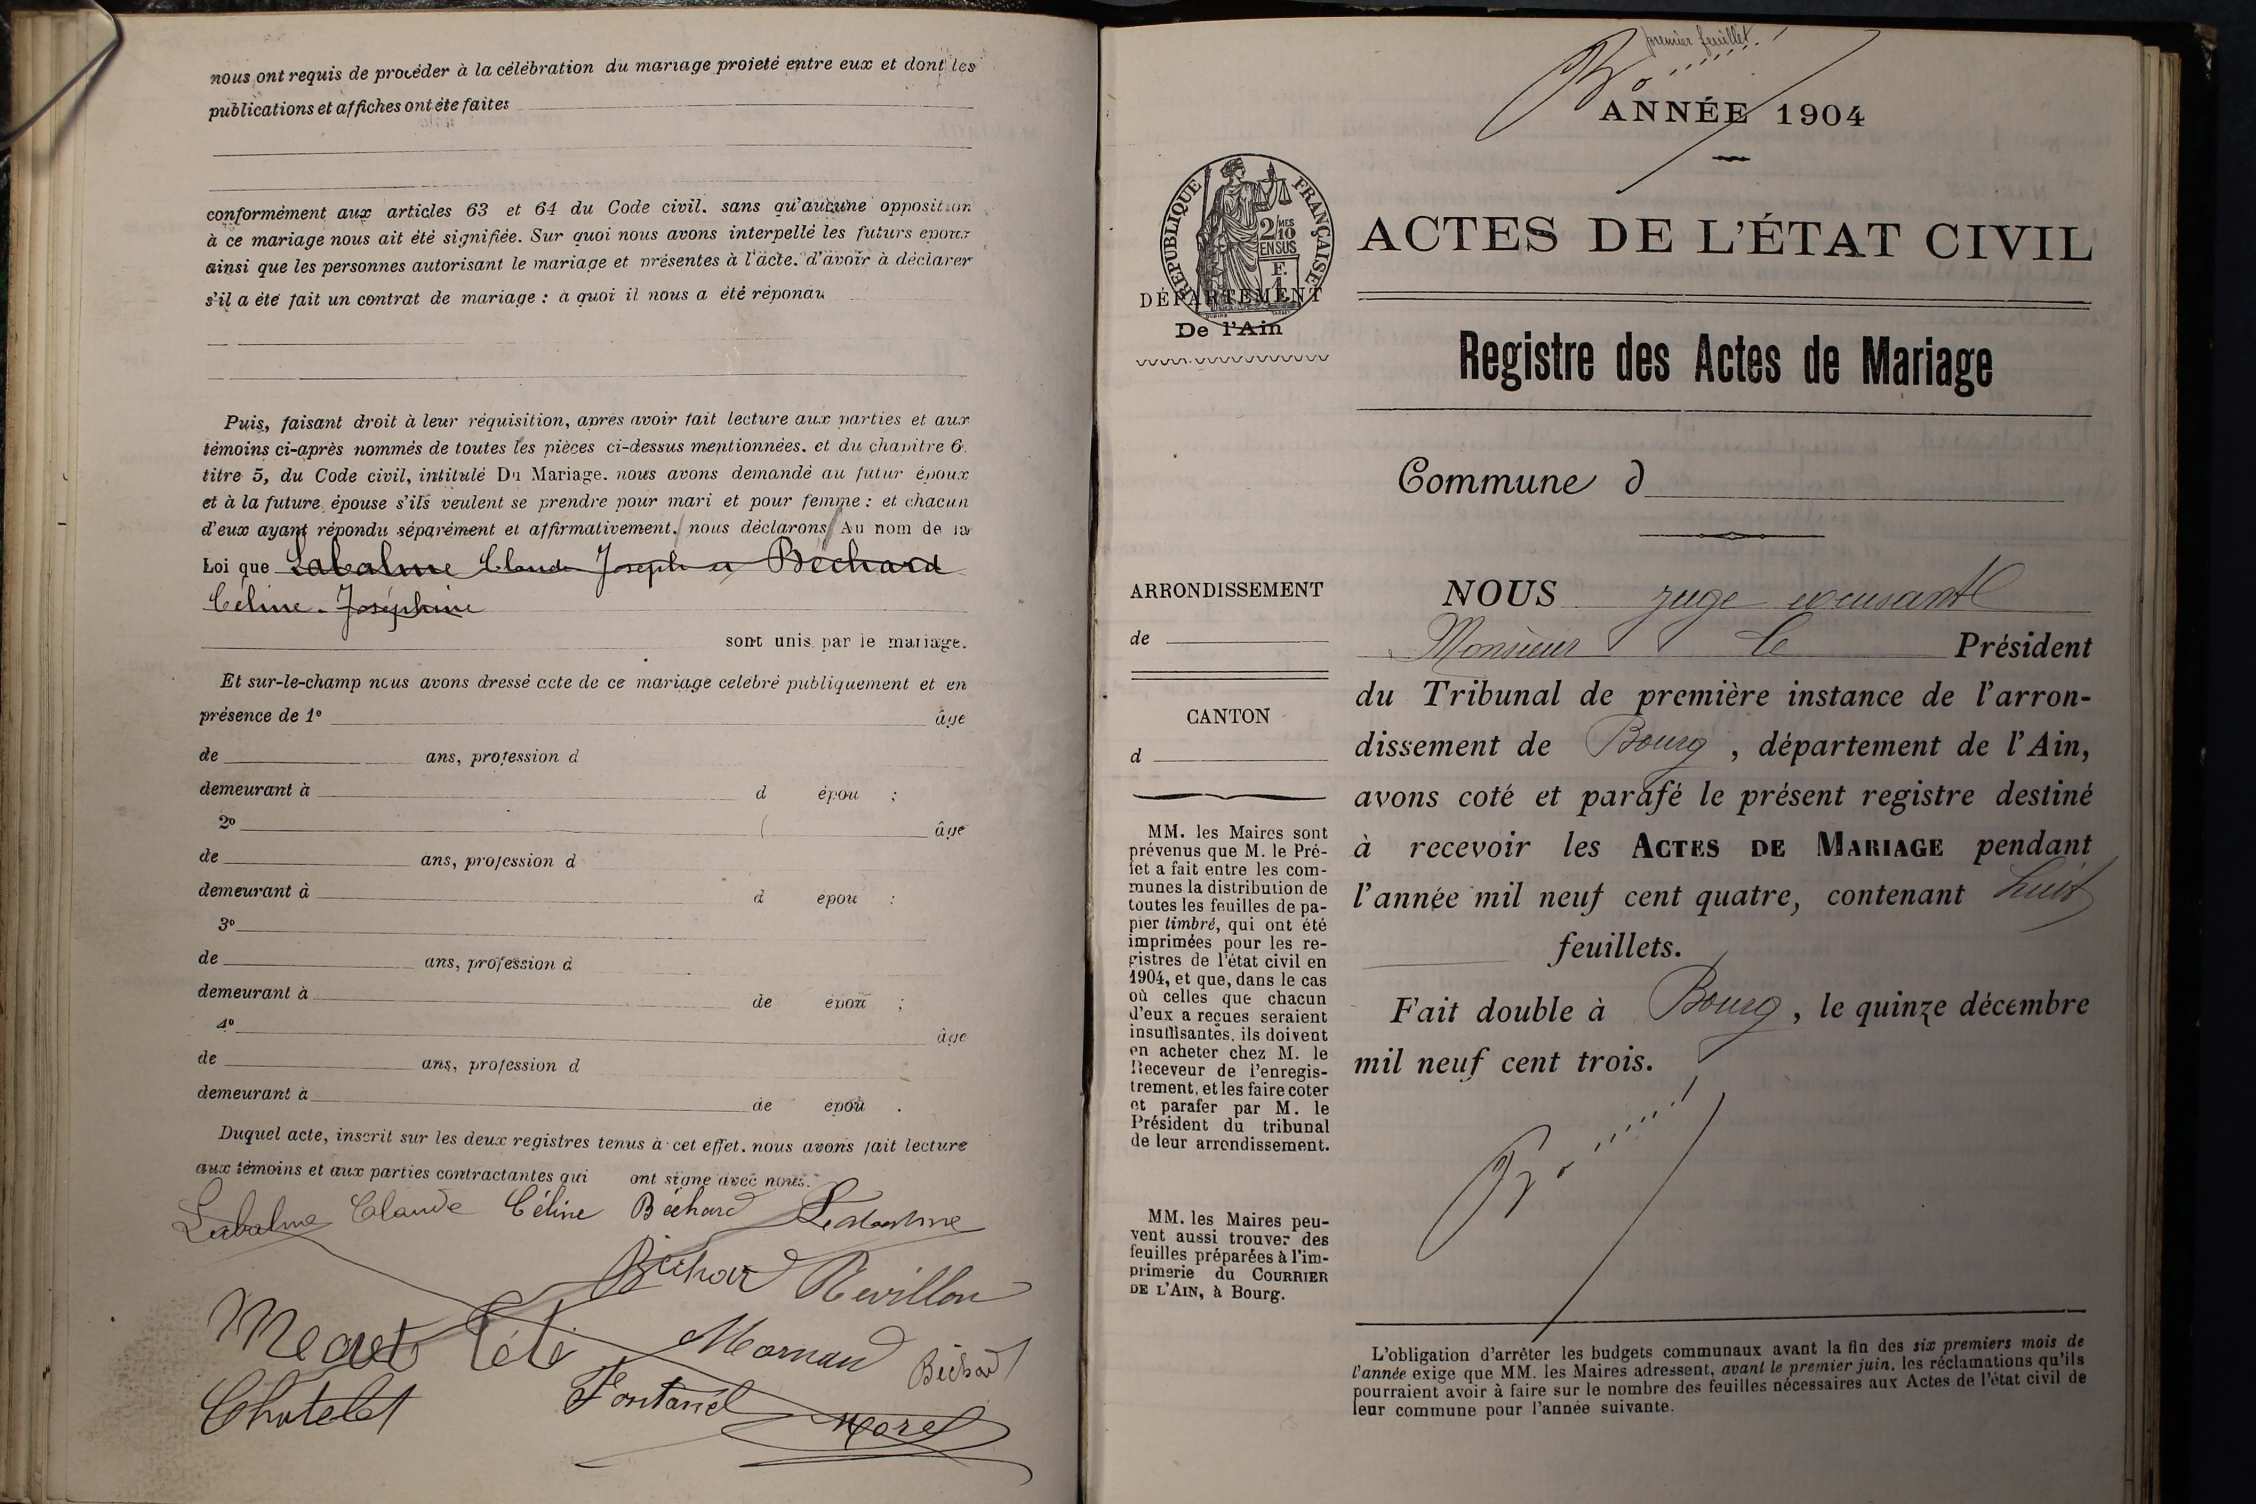 nous ont requis de procéder à la célébration du mariage projeté entre eux et dont les
publications et affiches ont été faites
conformément aux articles 63 et 64 du Code civil. sans qu'aucune opposition
à ce mariage nous ait été signifiée. Sur quoi nous avons interpellé les futurs epoux
ainsi que les personnes autorisant le mariage et présentes à l'acte. d'avoir à déclarer
s'il a été fait un contrat de mariage : a quoi il nous a été répondu
Puis, faisant droit à leur réquisition, après avoir fait lecture aux parties et aux
témoins ci-après nommés de toutes les pièces ci-dessus mentionnées. et du chapitre 6.
titre 5, du Code civil, intitulé Du Mariage. nous avons demandé au futur époux
et à la future épouse s'ils veulent se prendre pour mari et pour femme : et chacun
d'eux ayant répondu séparément et affirmativement. nous déclarons Au nom de la
Loi que Labalme Claude Joseph et Béchard
Céline Joséphine
sont unis par le mariage.
Et sur-le-champ nous avons dressé acte de ce mariage celébré publiquement et en
présence de 1º âge
de ans, profession d
demeurant à d épou ;
2º âge
de ans, profession d
demeurant à d epou :
3º
de ans, profession d
demeurant à de épou ;
4º âge
de ans, profession d
demeurant à de epou .
Duquel acte, inscrit sur les deux registres tenus à cet effet. nous avons fait lecture
aux témoins et aux parties contractantes qui ont signé avec nous.
Labalme Claude Céline Béchard Labalme
Béchard Revillon
Mornand Béchard
Chatelet Fontanel Morel
premier feuillet
ANNÉE 1904
RÉPUBLIQUE FRANÇAISE
2/10 MES
EN SUS
F.
DÉPARTEMENT
De l'Ain
ACTES DE L'ÉTAT CIVIL
Registre des Actes de Mariage
Commune d
ARRONDISSEMENT
de
CANTON
d
MM. les Maires sont
prévenus que M. le Pré-
fet a fait entre les com-
munes la distribution de
toutes les feuilles de pa-
pier timbré, qui ont été
imprimées pour les re-
gistres de l'état civil en
1904, et que, dans le cas
où celles que chacun
d'eux a reçues seraient
insuffisantes, ils doivent
en acheter chez M. le
Receveur de l'enregis-
trement, et les faire coter
et parafer par M. le
Président du tribunal
de leur arrondissement.
MM. les Maires peu-
vent aussi trouver des
feuilles préparées à l'im-
primerie du COURRIER
DE L'AIN, à Bourg.
NOUS juge
Monsieur le Président
du Tribunal de première instance de l'arron-
dissement de Bourg , département de l'Ain,
avons coté et parafé le présent registre destiné
à recevoir les ACTES DE MARIAGE pendant
l'année mil neuf cent quatre, contenant huit
feuillets.
Fait double à Bourg , le quinze décembre
mil neuf cent trois.
L'obligation d'arrêter les budgets communaux avant la fin des six premiers mois de
l'année exige que MM. les Maires adressent, avant le premier juin, les réclamations qu'ils
pourraient avoir à faire sur le nombre des feuilles nécessaires aux Actes de l'état civil de
leur commune pour l'année suivante.